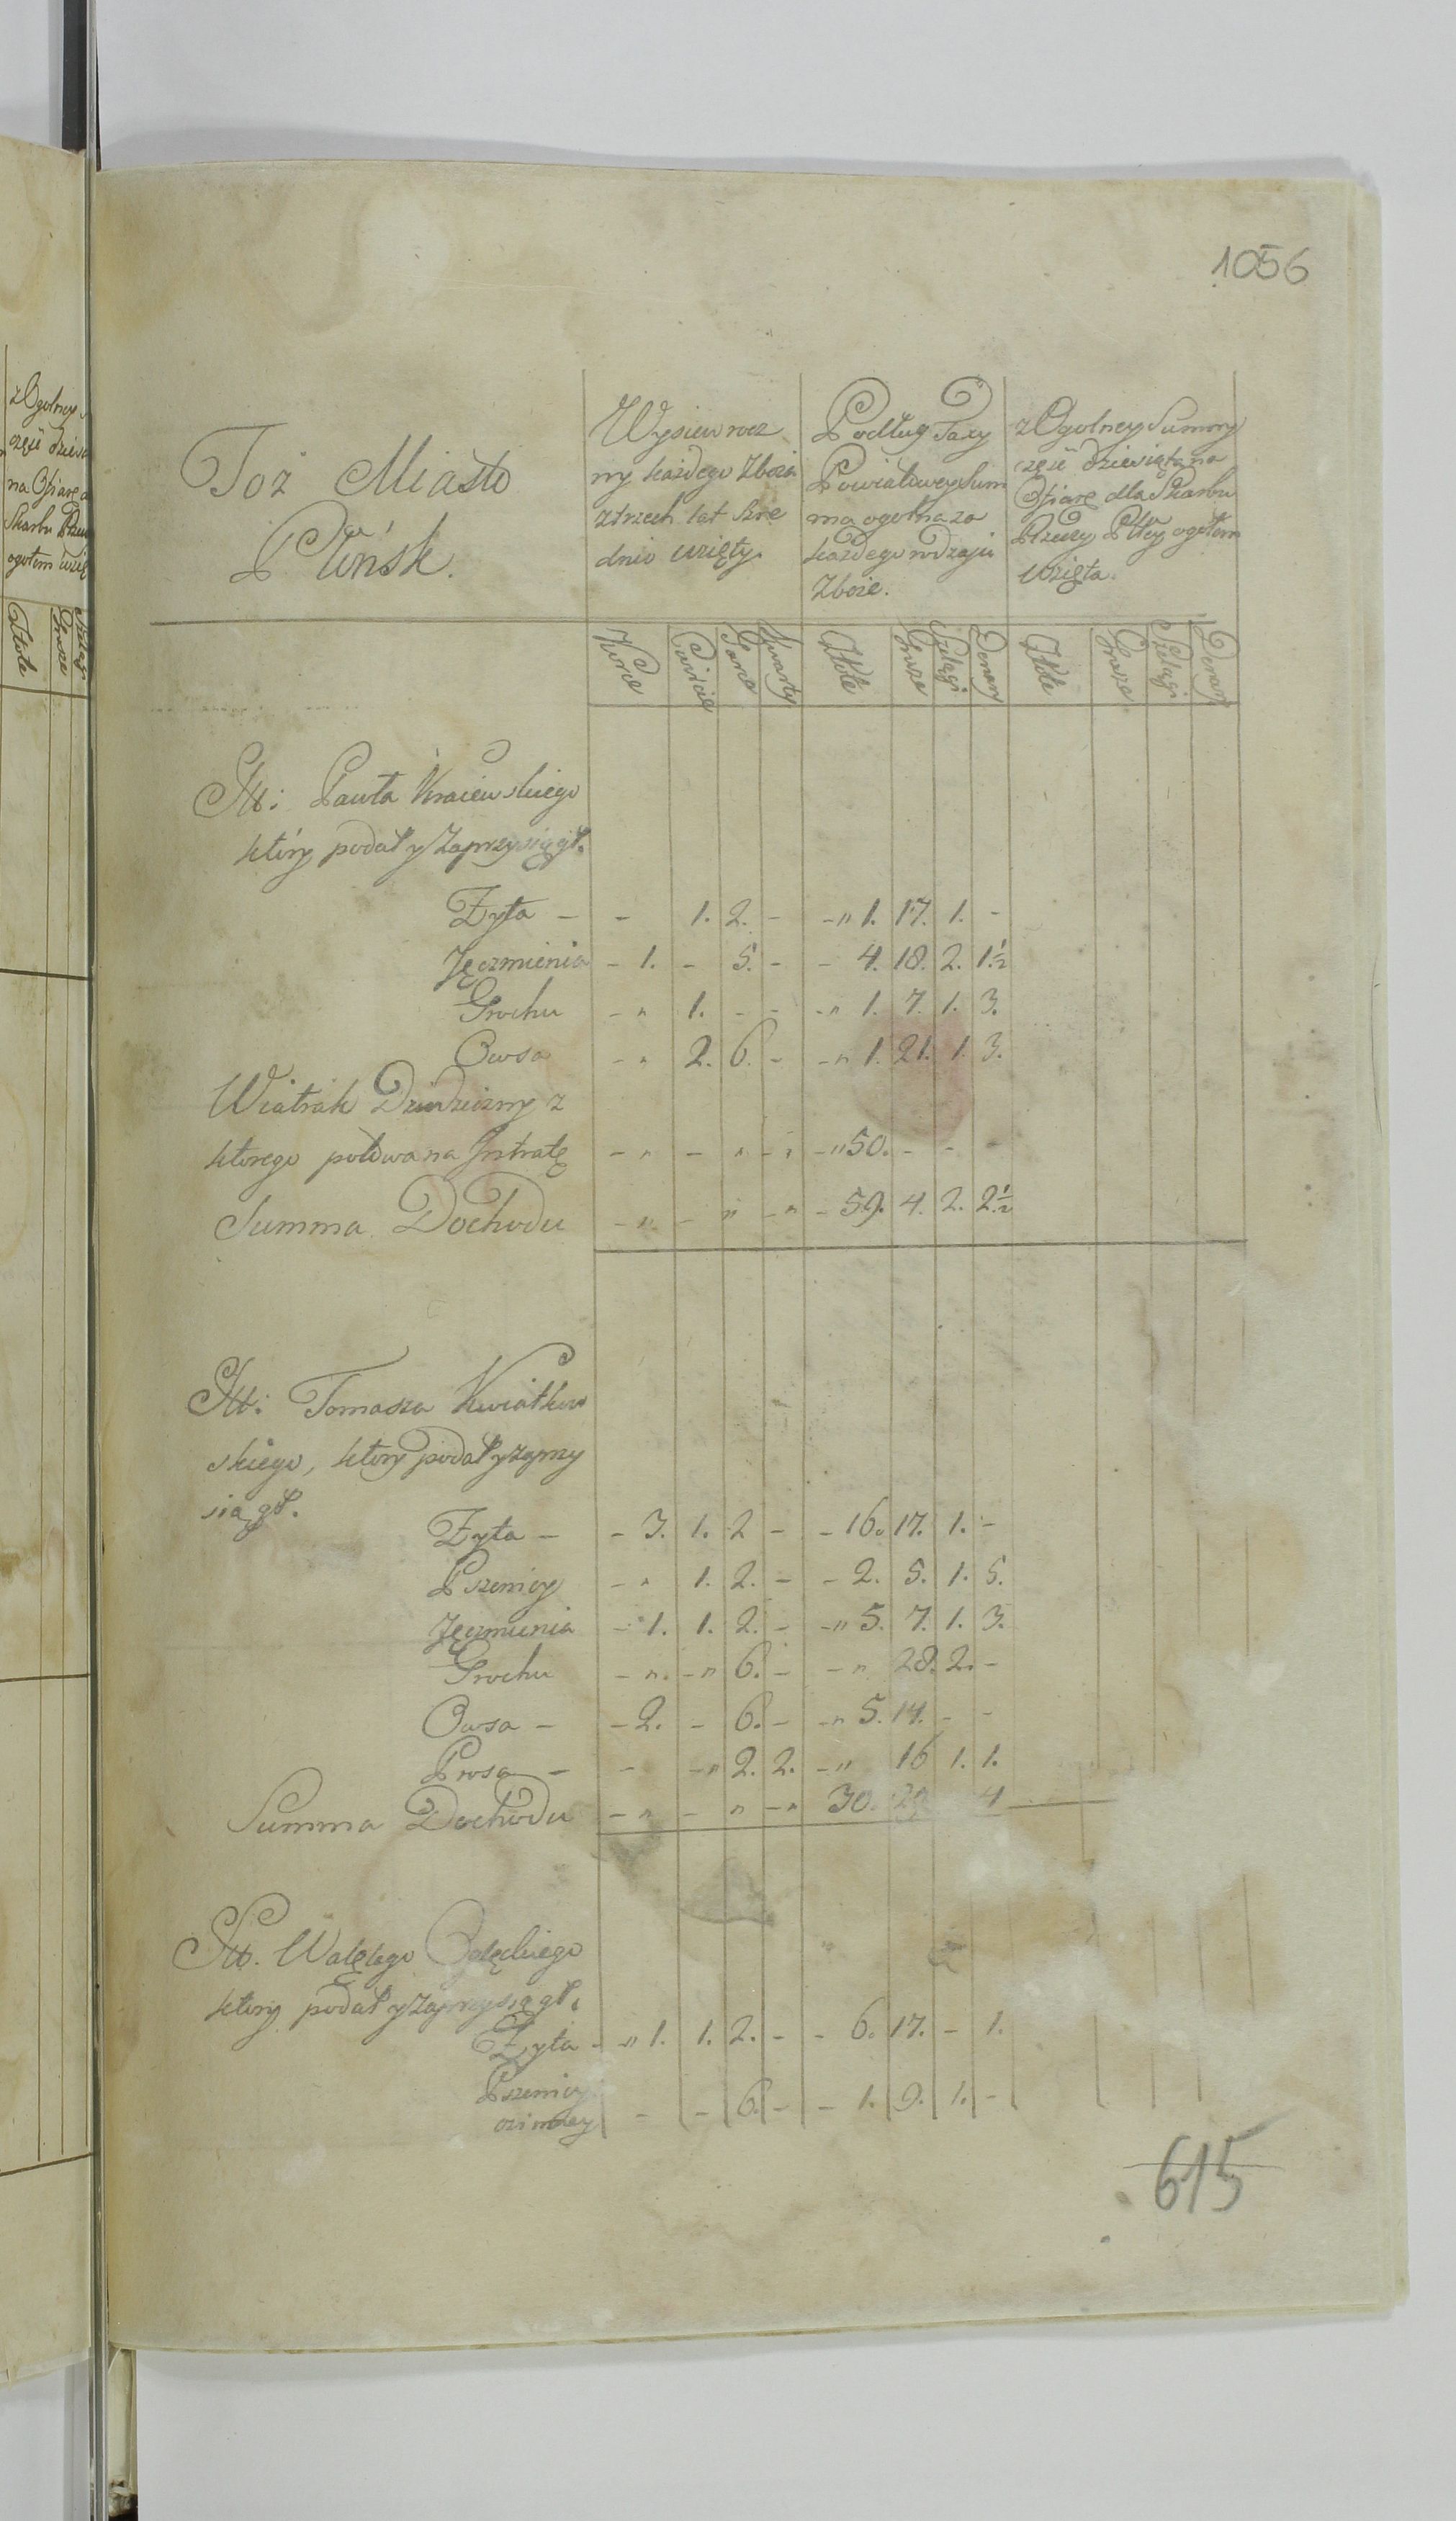 1056
Toż Miasto
Płońsk.
Wysiew rocz
ny każdego Zboża
z trzech lat Sre
dnio wzięty.
Podług Taxy
Powiatowey Sum
ma ogolna za
każdego rodzaju
Zboże.
z Ogolney Summy
częśc dziewiąta na
Ofiarę dla Skarbu
Rzeczy Pltey ogołem
wzięta.
Korce Cwiercie Garce Kwarty Złote Grosze Szelągi Denary Złote Grosze Szelągi Denary
Pawła Kraiewskiego
który podał y zaprzysiągł.
Zyta - - 1. 2. - -" 1. 17. 1. -
Jęczmienia - 1. - 5. - - 4. 18. 2. 1.½
Grochu - " 1. - - -" 1. 7. 1. 3.
Owsa - " 2. 6. - -" 1. 21. 1. 3.
Wiatrak Dziedziczny z
ktorego połowa na Intratę - " - " - " -" 50. - - -
Summa Dochodu - " - " - " - 59. 4. 2. 2.½
Tomasza Kwiatkow
skiego, ktory podał y zaprzy
siągł.
Zyta - - 3. 1. 2 - - 16. 17. 1. -
Pszenicy - " 1. 2. - - 2. 5. 1. 5.
Jęczmienia - 1. 1. 2. - -" 5. 7. 1. 3.
Grochu - ". - " 6. - - " 28. 2. -
Owsa - - 2. - 6. - -" 5. 14. - -
Prosa - - - " 2. 2. -" 16 1. 1.
Summa Dochodu - " - " - " 30. 29 4
ktory podał y zaprzysiągł.
Zyta - " 1. 1. 2. - - 6. 17. - 1.
Pszenicy
ozimey - - 6. - - 1. 9. 1. -
615
z Ogolney
częśc dziew
na Ofiarę d
Skarbu Rzecz
ogołem wzię
Złote Grosze Szeląg